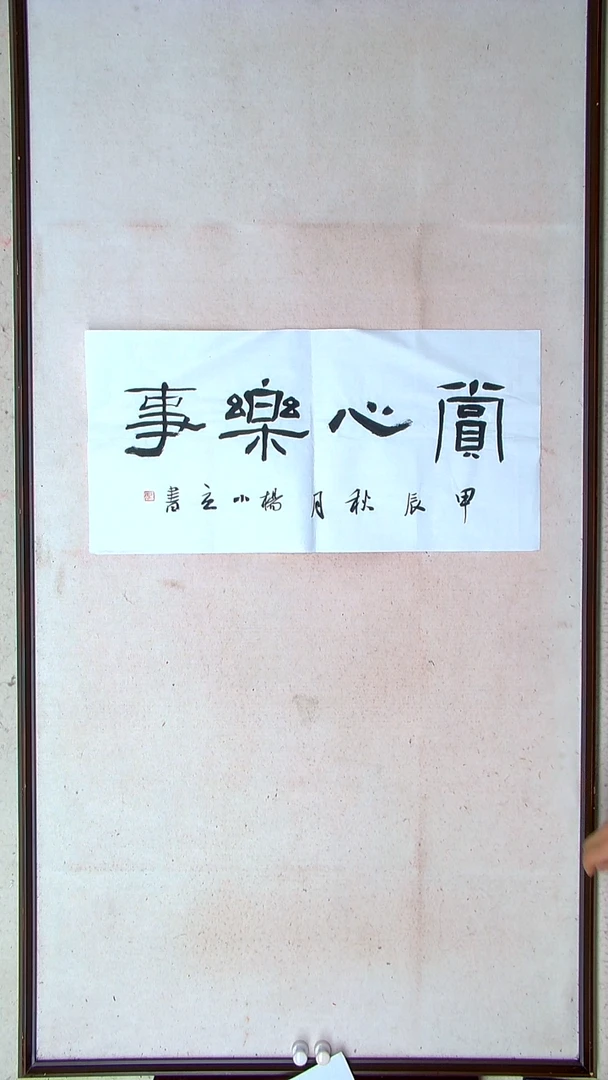 賞心樂事
甲辰秋月楊小立書